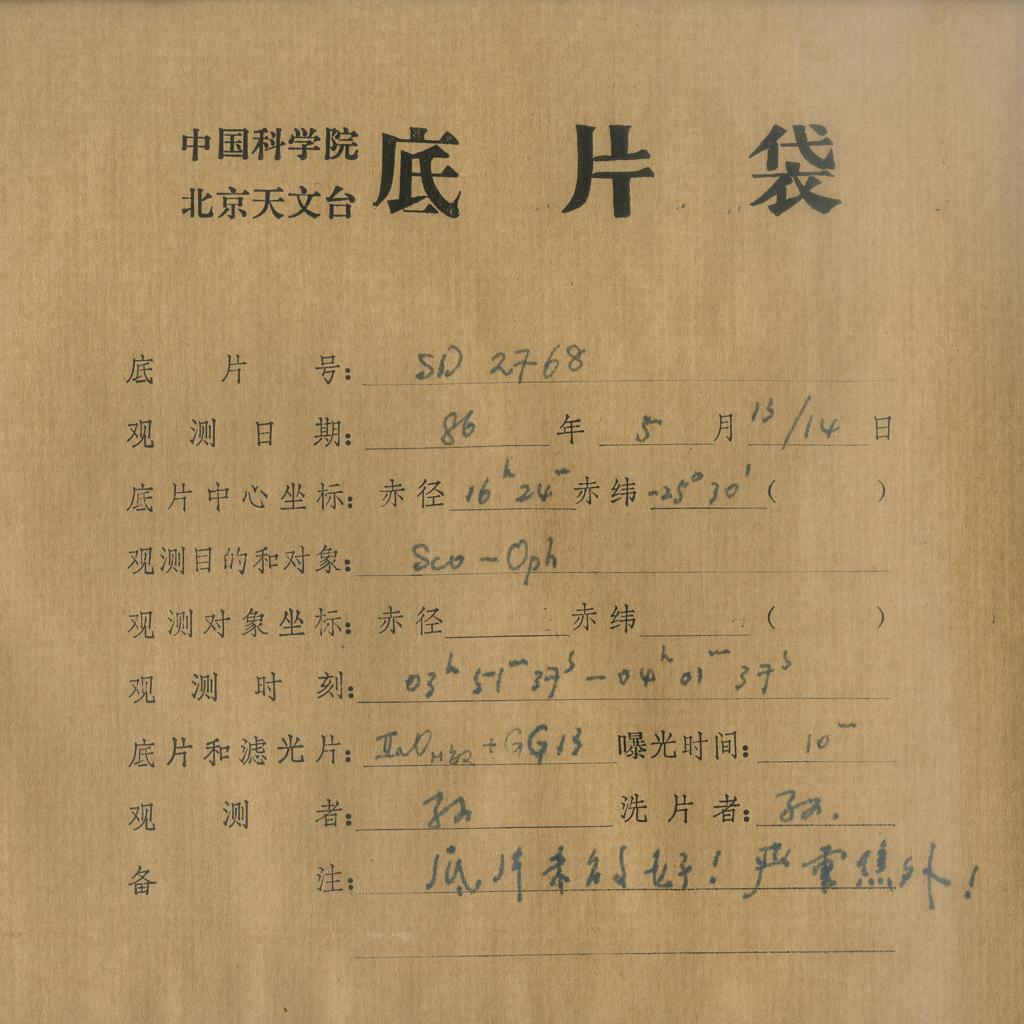 中国科学院
北京天文台
底片袋
底片号: SD 2768
观测日期: 86 年 5 月 13/14 日
底片中心坐标: 赤径 16h 24m 赤纬 -25° 30' ( )
观测目的和对象: Sco - Oph
观测对象坐标: 赤径 赤纬 ( )
观测时刻: 03h 51m 37s - 04h 01m 37s
底片和滤光片: IIaO + GG13 曝光时间: 10m
观测者: 洗片者:
备注: 底片未 好! 严重焦外!